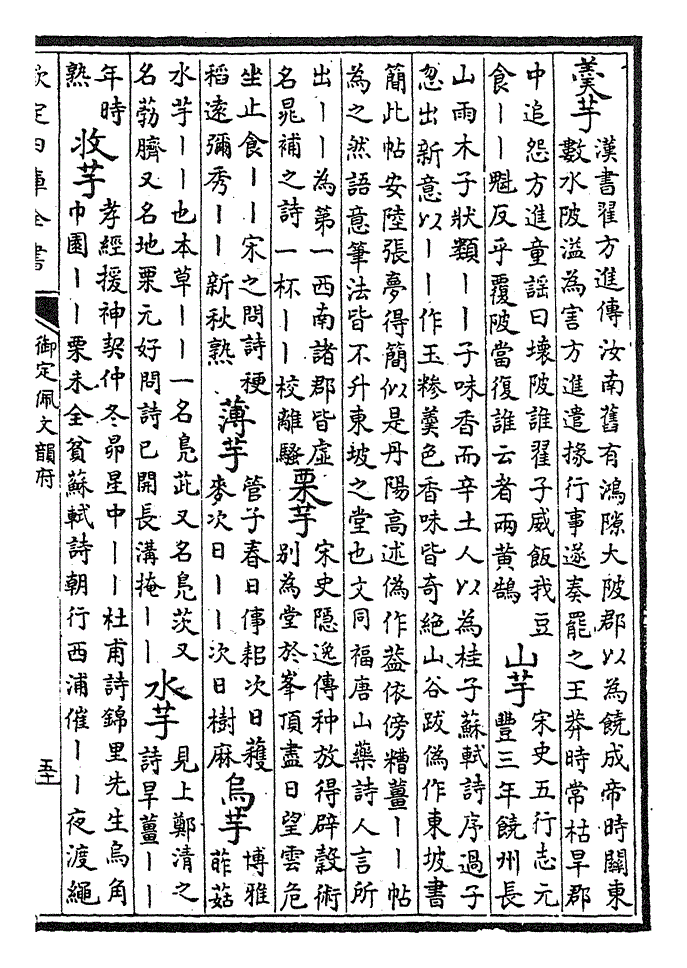 羹芋 漢書翟方進傳汝南舊有鴻隙大陂郡以為饒成帝時關東
數水陂溢為害方進遣掾行事遂奏罷之王莽時常枯旱郡
中追怨方進童謡曰壞陂誰翟子威飯我豆
食丨丨魁反乎覆陂當復誰云者兩黄鵠
山芋 宋史五行志元
豐三年饒州長
山雨木子狀類丨丨子味香而辛土人以為桂子蘇軾詩序過子
忽出新意以丨丨作玉糝羹色香味皆奇絶山谷跋偽作東坡書
簡此帖安陸張夢得簡似是丹陽高述偽作葢依傍糟薑丨丨帖
為之然語意筆法皆不升東坡之堂也文同福唐山藥詩人言所
出丨丨為第一西南諸郡皆虚
名晁補之詩一杯丨丨校離騷
栗芋 宋史隱逸傳种放得辟穀術
别為堂於峯頂盡日望雲危
坐止食丨丨宋之問詩稉
稻逺彌秀丨丨新秋熟
薄芋 管子春日倳耜次日穫
麥次日丨丨次日樹麻
烏芋 博雅
葃菇
水芋丨丨也本草丨丨一名鳬茈又名鳬茨又
名葧臍又名地栗元好問詩已開長溝掩丨丨
水芋 見上鄭清之
詩早薑丨丨
年時
熟
收芋 孝經援神契仲冬昴星中丨丨杜甫詩錦里先生烏角
巾園丨丨栗未全貧蘇軾詩朝行西浦催丨丨夜渡繩
欽定四庫全書
御定佩文韻府
五十